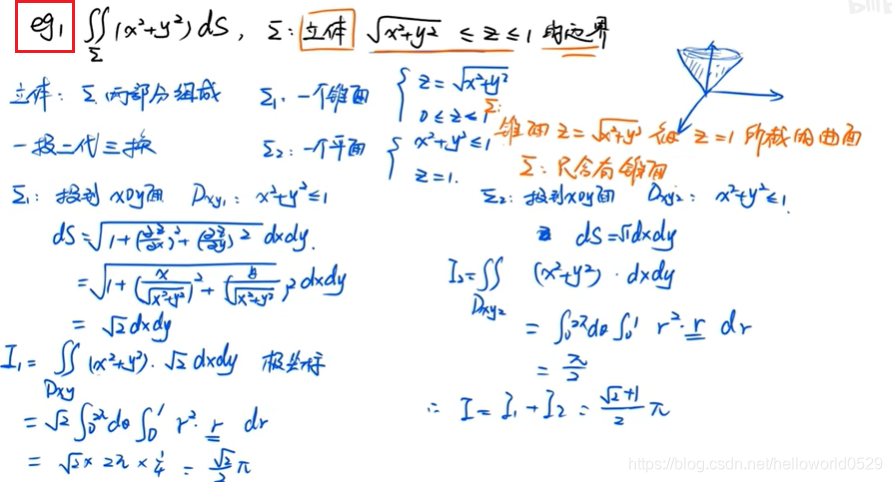 eg1 ∬_Σ (x²+y²) dS, Σ: 立体 √(x²+y²) ≤ z ≤ 1 的边界
立体: Σ 两部分组成 Σ₁: 一个锥面 { z = √(x²+y²)
0 ≤ z ≤ 1
Σ:
锥面 z = √(x²+y²) 被 z = 1 所截的曲面
一投二代三换 Σ₂: 一个平面 { x²+y² ≤ 1
z = 1.
Σ: 只含有锥面
Σ₁: 投到 xoy面 Dxy₁: x²+y² ≤ 1
dS = √(1+(∂z/∂x)²+(∂z/∂y)²) dxdy.
= √(1+(x/√(x²+y²))²+(y/√(x²+y²))²) dxdy
= √2 dxdy
I₁ = ∬_Dxy (x²+y²)·√2 dxdy 极坐标
= √2 ∫₀^2π dθ ∫₀^1 r²·r dr
= √2 × 2π × 1/4 = √2/2 π
Σ₂: 投到xoy面 Dxy₂: x²+y² ≤ 1.
dS = √1 dxdy
I₂ = ∬_Dxy₂ (x²+y²)·dxdy
= ∫₀^2π dθ ∫₀^1 r²·r dr
= π/2
∴ I = I₁ + I₂ = (√2+1)/2 π
https://blog.csdn.net/helloworld0529